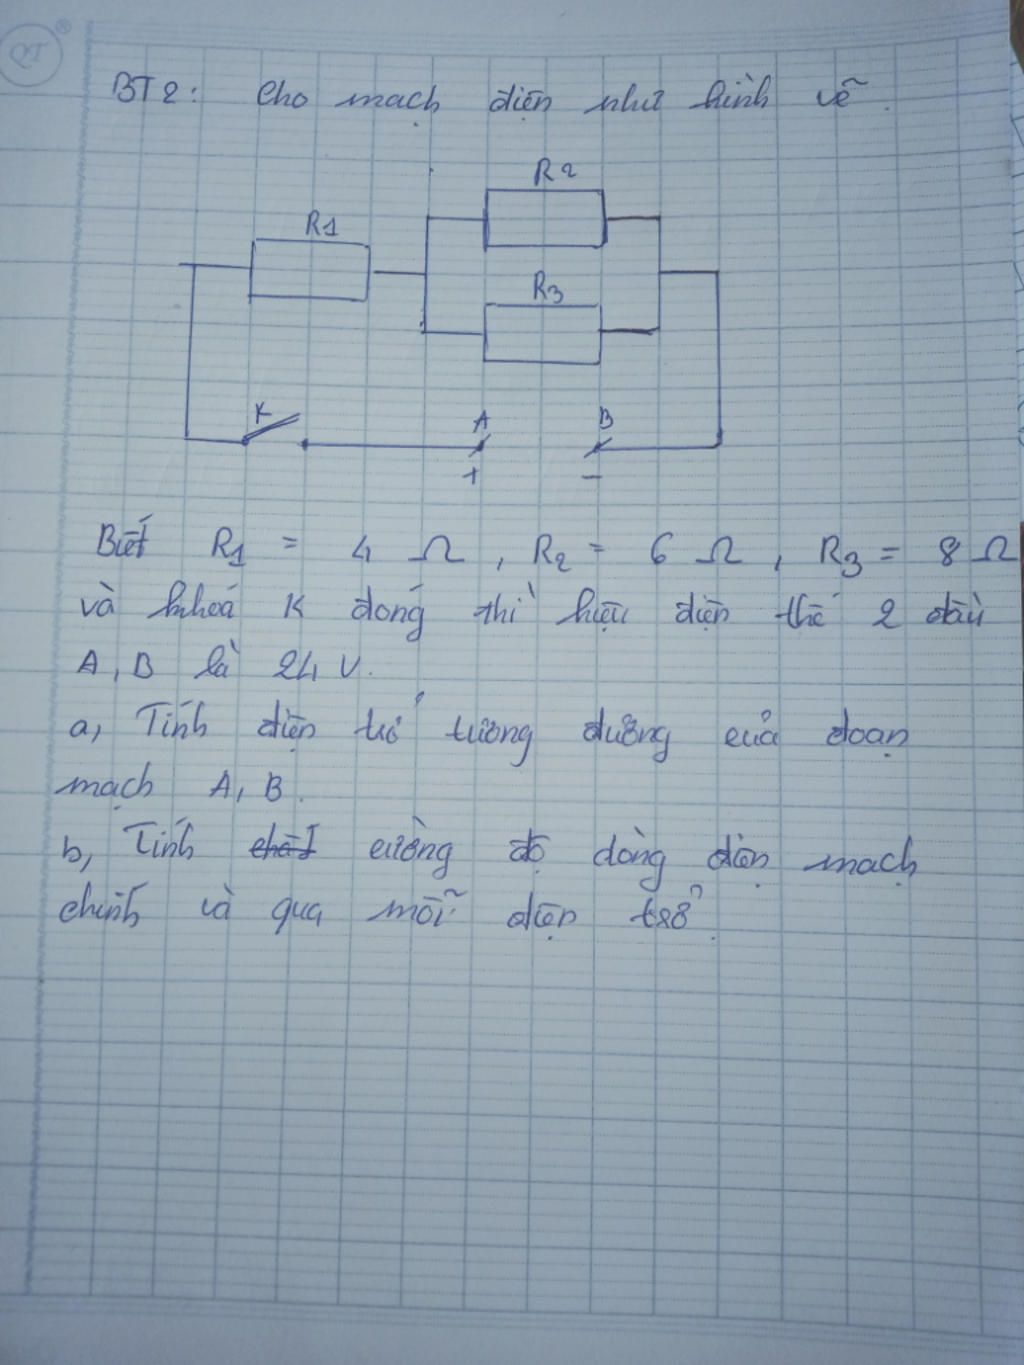 QT ®
BT2: Cho mạch điện như hình vẽ.
R2
R1
R3
K
A
B
+
-
Biết R1 = 4 Ω, R2 = 6 Ω, R3 = 8 Ω
và khoá K đóng thì hiệu điện thế 2 đầu
A, B là 24 V.
a, Tính điện trở tương đương của đoạn
mạch A, B.
b, Tính cường độ dòng điện mạch
chính và qua mỗi điện trở.